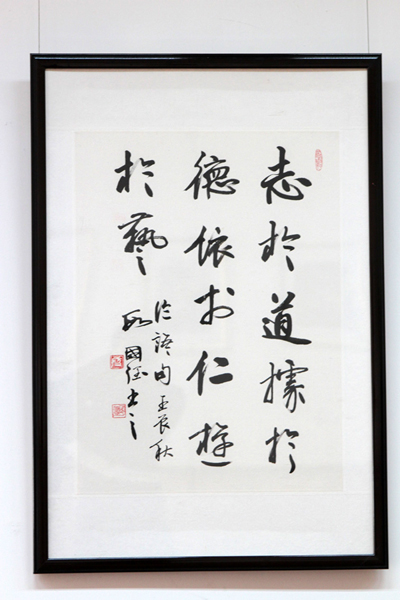 志於道據於
德依於仁游
於藝
论語句 壬辰秋
國經书之